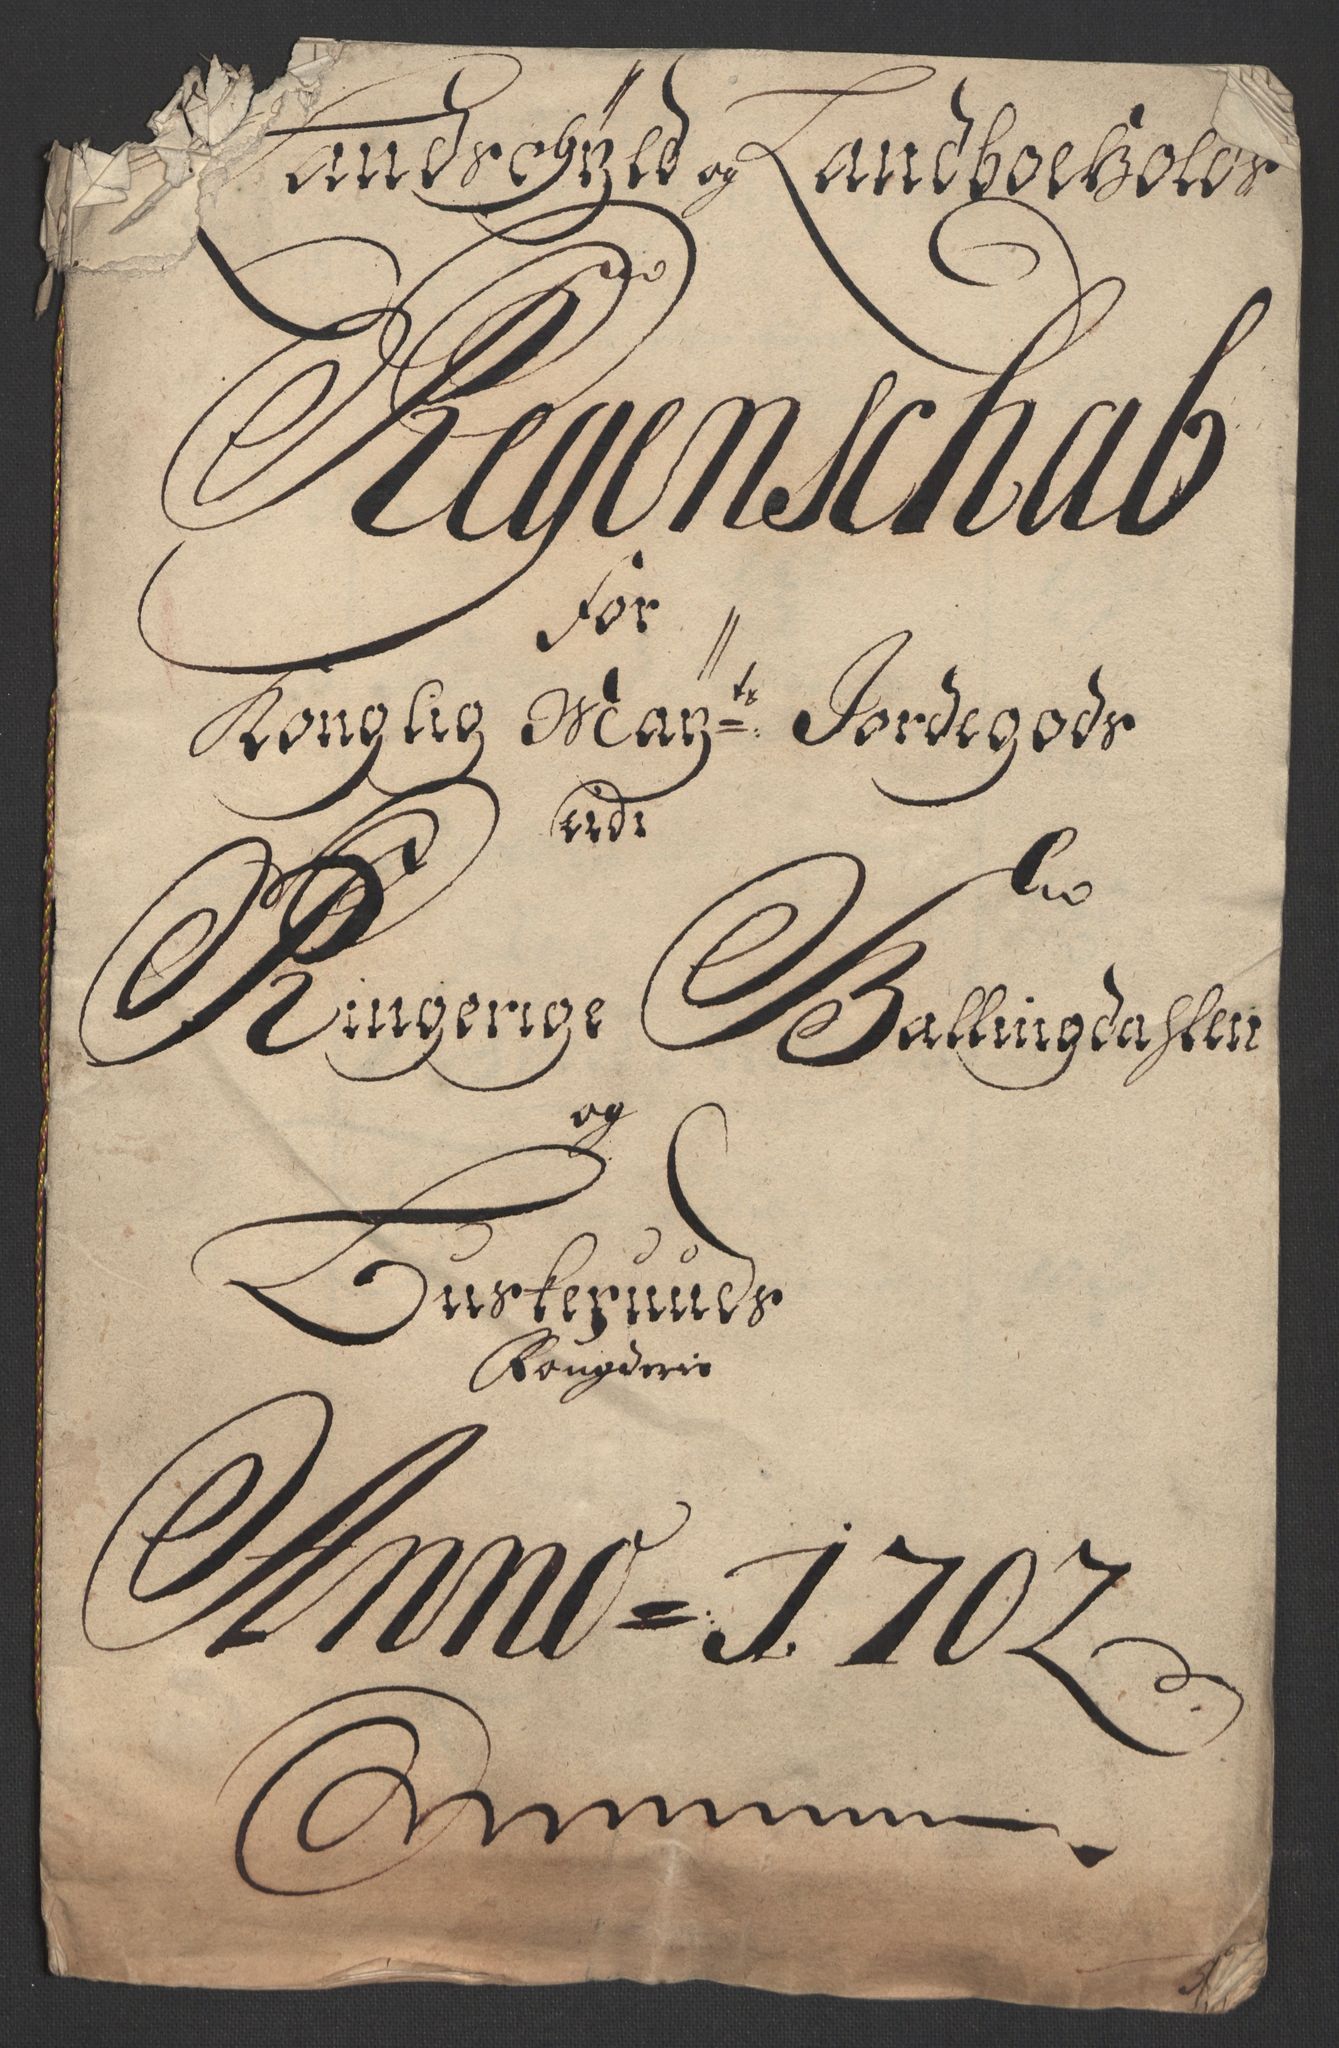 Landschÿld og Landboeholds
Regenschab
for
Konglig Maÿts: Jordegods
udi
Ringerige Hallingdahlen
og
Buskeruuds
Fougderie
Anno=1702